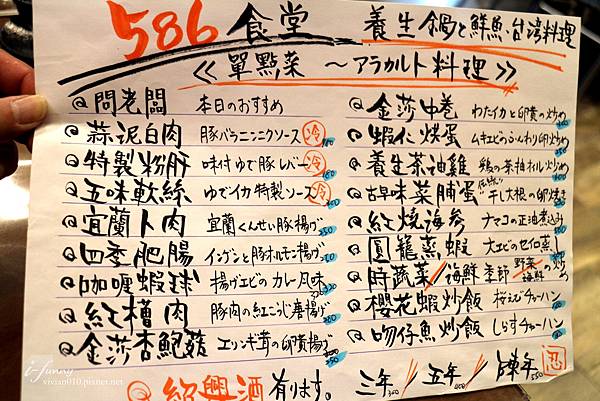 586 食堂 養生鍋と鮮魚·台湾料理
《單點菜 ～アラカルト料理》
問老闆 本日のおすすめ
蒜泥白肉 豚バラニンニクソース 冷
特製粉肝 味付ゆで豚レバー 冷
五味軟絲 ゆでイカ特製ソース 冷
宜蘭卜肉 宜蘭くんせい豚揚げ
四季肥腸 インゲンと豚ホルモン揚げ
咖喱蝦球 揚げエビのカレー風味
紅糟肉 豚肉の紅こうじ唐揚げ
金莎杏鮑菇 エリンギ茸の卵黄揚げ
金莎中卷 わたイカと卵黄の炒め
蝦仁烘蛋 ムキエビのふんわり卵炒め
養生茶油雞 鶏の茶油
古早味菜脯蛋 伝統的 干し大根の卵焼き
紅燒海參 ナマコの正油煮込み
圓籠蒸蝦 大エビのセイロ蒸し
時蔬菜/海鮮 季節 野菜/海鮮 の炒め
櫻花蝦炒飯 桜えびチャーハン
吻仔魚炒飯 しらすチャーハン
紹興酒 有ります。 三年 / 五年 / 陳年
忍
i-Funny
vivian010.pixnet.net